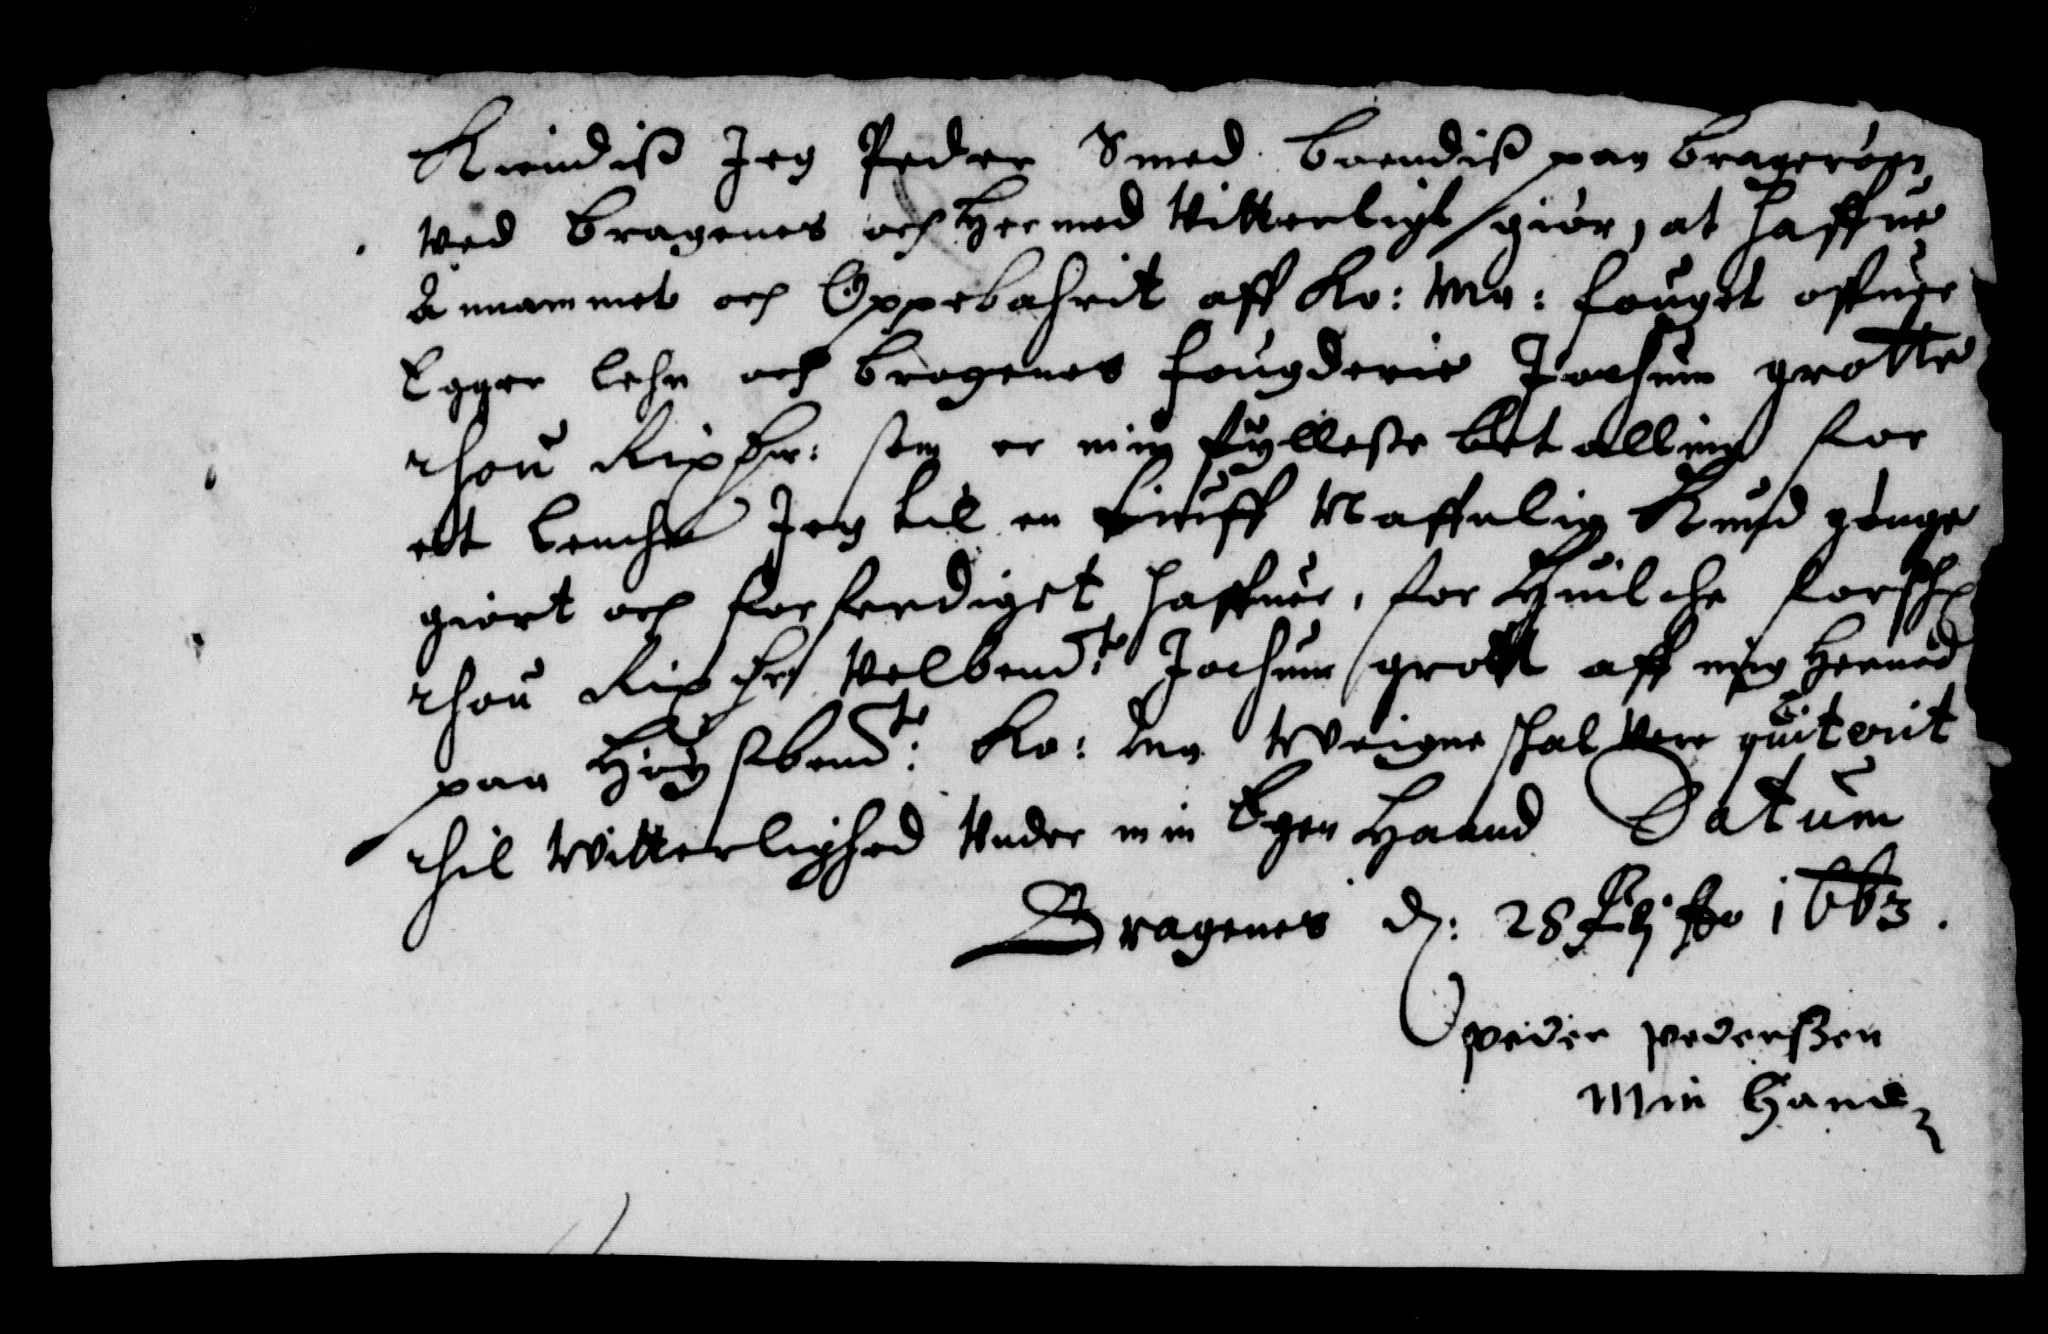 Kiendiß Jeg Peder Smed boendiß paa Bragerøen
Ved Bragenes och Hermed Vitterligt giør, at haffue
Annammet och Oppebahrit aff Ko: May: fouget offuer
Eger lehn och Bragenes fougderie Jochum grotte
thou Rixdr: som er min fylleste betalling for
ett lenche Jeg til en tiuff Naffnlig Knud
giort och forferdiget haffuer, for Huilche forsch
thou Rix dr Velbemt: Jochum grott aff mig Hermed
paa Høystbemt: Ko: May Weigne schal Vere quiterit
thil Witterlighed Under min Egen Haand Datum
Bragenes d: 28 1663.
peder pederßen
Min Hand